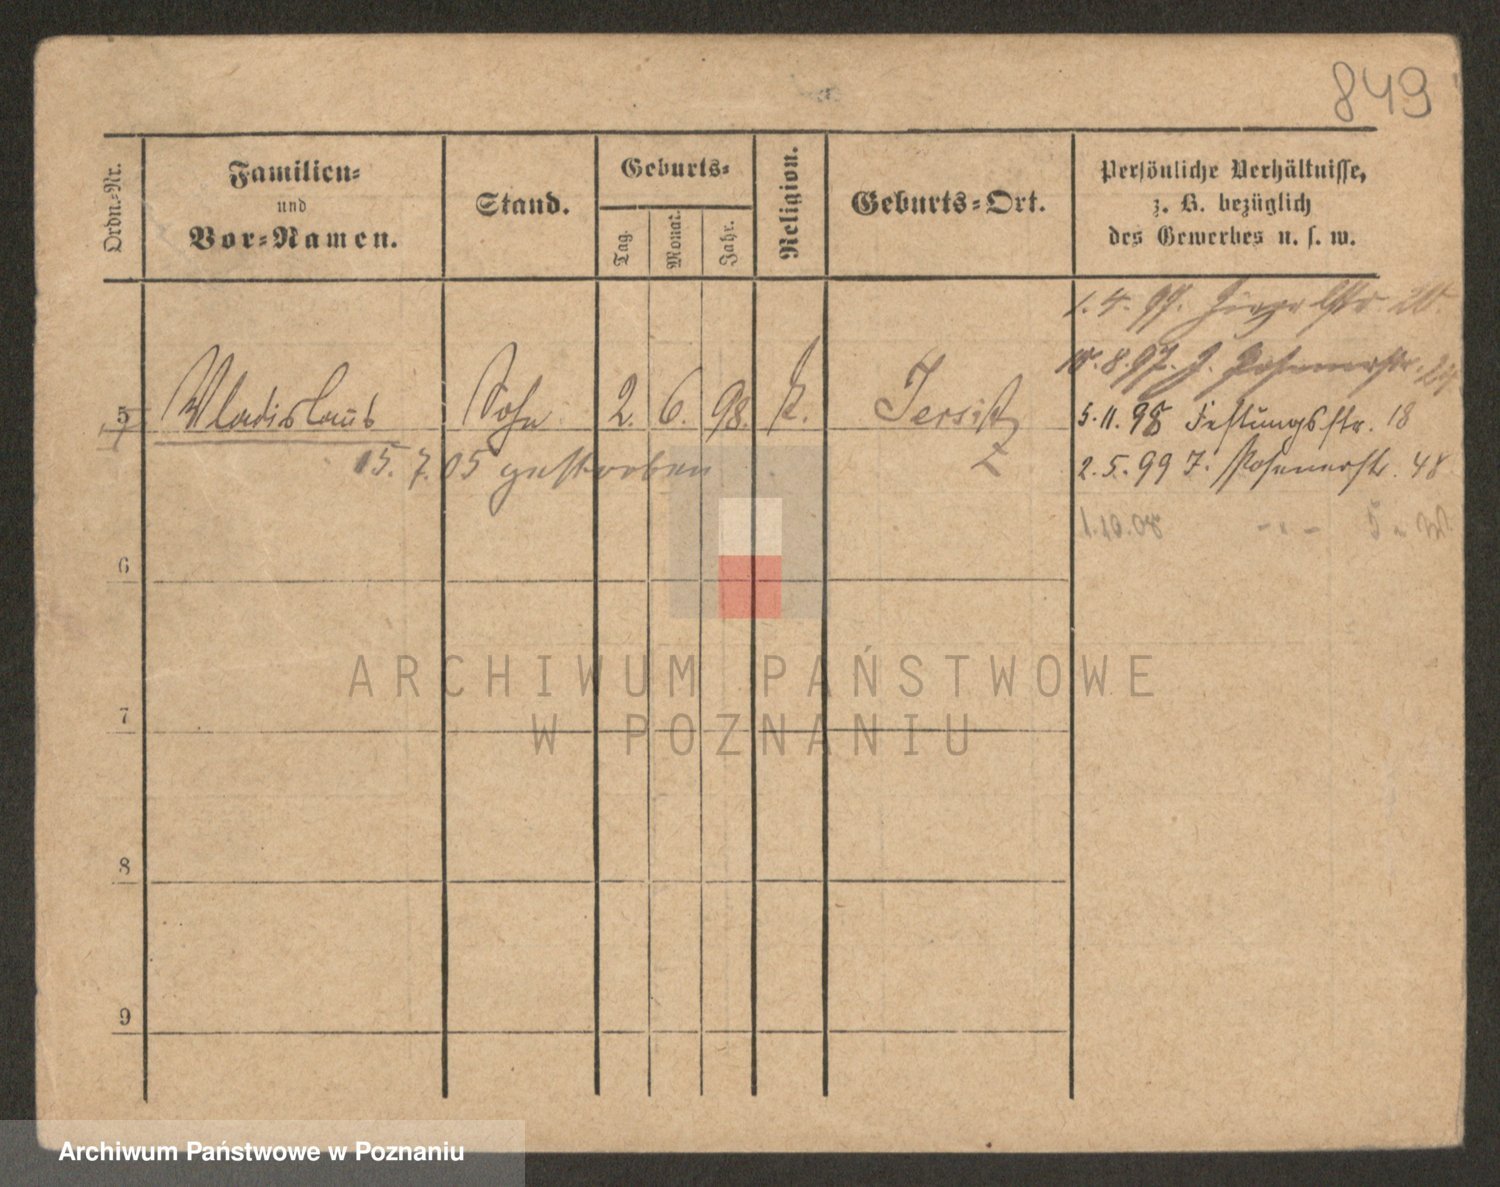 849
Ordn.-Nr.
Familien-
und
Vor-Namen.
Stand.
Geburts-
Tag.
Monat.
Jahr.
Religion.
Geburts-Ort.
Persönliche Verhältnisse,
z. B. bezüglich
des Gewerbes u. s. w.
1. 4. 97.
10. 8. 97. J. Posenerstr.
5 Wladislaus Sohn 2. 6. 98. k. Jersitz
5. 11. 98 Festungsstr. 18
15. 7. 05 gestorben
2. 5. 99 J. Posenerstr. 48
1. 10. 08
6
7
8
9
ARCHIWUM PAŃSTWOWE
W POZNANIU
Archiwum Państwowe w Poznaniu